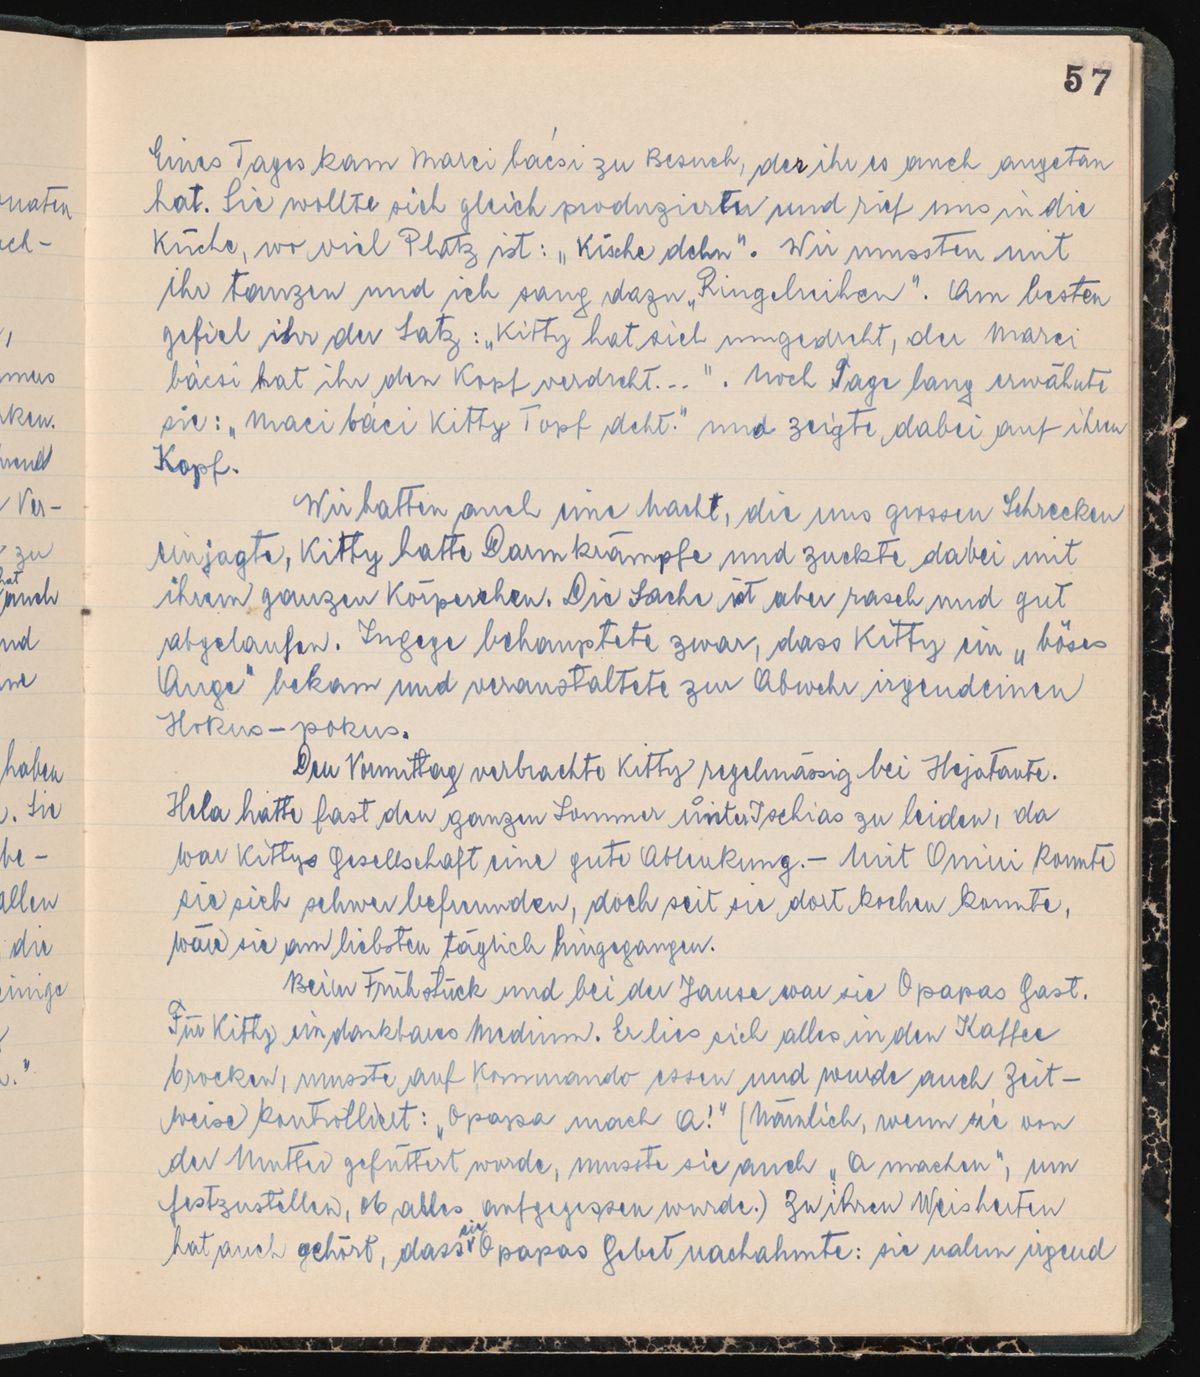 57
Eines Tages kam Marci bácsi zu Besuch, der ihr es auch angetan
hat. Sie wollte sich gleich produzierten und rief uns in die
Küche, wo viel Platz ist: „Kische dehn". Wir mussten mit
ihr tanzen und ich sang dazu „Ringelreihen". Am besten
gefiel ihr der Satz: „Kitty hat sich umgedreht, der Marci
bácsi hat ihr den Kopf verdreht...". Noch Tage lang erwähnte
sie: „Maci báci Kitty Topf deht." und zeigte dabei auf ihren
Kopf.
Wir hatten auch eine Nacht, die uns grossen Schrecken
einjagte, Kitty hatte Darmkrämpfe und zuckte dabei mit
ihrem ganzen Körperchen. Die Sache ist aber rasch und gut
abgelaufen. Ingege behauptete zwar, dass Kitty ein „böses
Auge" bekam und veranstaltete zur Abwehr irgendeinen
Hokus-pokus.
Den Vormittag verbrachte Kitty regelmässig bei Hejatante.
Hela hatte fast den ganzen Sommer unter Ischias zu leiden, da
war Kittys Gesellschaft eine gute Ablenkung. – Mit Omini konnte
sie sich schwer befreunden, doch seit sie dort kochen konnte,
wäre sie am liebsten täglich hingegangen.
Beim Frühstück und bei der Jause war sie Opapas Gast.
Für Kitty ein dankbares Medium. Er lies sich alles in den Kaffee
brocken, musste auf Kommando essen und wurde auch zeit-
weise kontrolliert: „Opapa mach A!" (Nämlich, wenn sie von
der Mutter gefüttert wurde, musste sie auch „A machen", um
festzustellen, ob alles aufgegessen wurde.) Zu ihren Weisheiten
hat auch gehört, dass sie Opapas Gebet nachahmte: sie nahm irgend